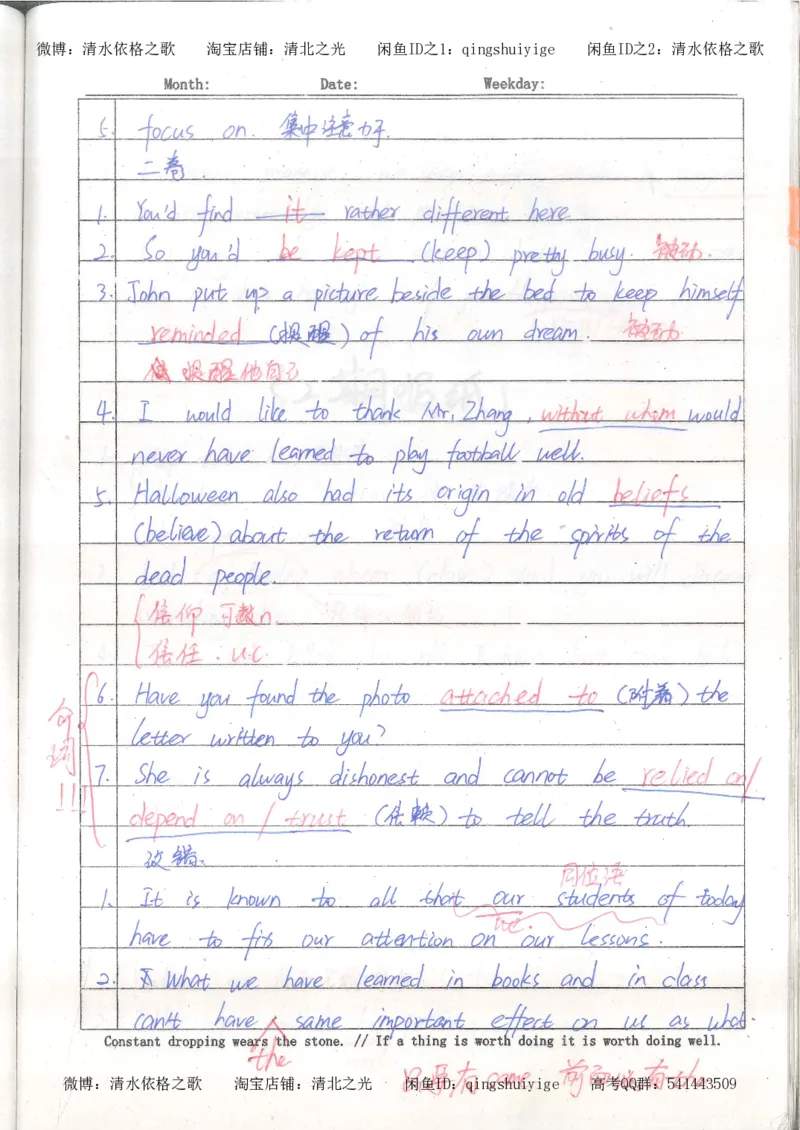 微博：清水依格之歌 淘宝店铺：清北之光 闲鱼ID之1：qingshuiyige 闲鱼ID之2：清水依格之歌
Month: Date: Weekday:
5. focus on. 集中注意力于.
二卷.
1. You'd find it rather different here
2. So you'd be kept (keep) pretty busy. 被动.
3. John put up a picture beside the bed to keep himself
reminded (提醒) of his own dream. 被动
提醒他自己
4. I would like to thank Mr. Zhang, without whom would
never have learned to play football well.
5. Halloween also had its origin in old beliefs
(believe) about the return of the spirits of the
dead people.
信仰 可数n.
信任. u.c.
介词!!!
6. Have you found the photo attached to (附着) the
letter written to you?
7. She is always dishonest and cannot be relied on/
depend on / trust (依赖) to tell the truth.
改错.
同位语
1. It is known to all that our students of today
we.
have to fix our attention on our lessons.
2. What we have learned in books and in class
can't have same important effect on us as what
Constant dropping wears the stone. // If a thing is worth doing it is worth doing well.
the
只要有same 前面必有the
微博：清水依格之歌 淘宝店铺：清北之光 闲鱼ID：qingshuiyige 高考QQ群：541443509